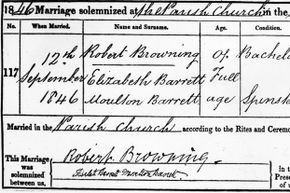 1846 Marriage solemnized at the Parish Church in the
No. When Married. Name and Surname. Age. Condition.
12th Robert Browning Of Bachelo
117 September Elizabeth Barrett Full
1846 Moulton Barrett age Spinst
Married in the Parish Church according to the Rites and Ceremo
This Marriage was solemnized between us,
Robert Browning.
Barrett
in the Pres of